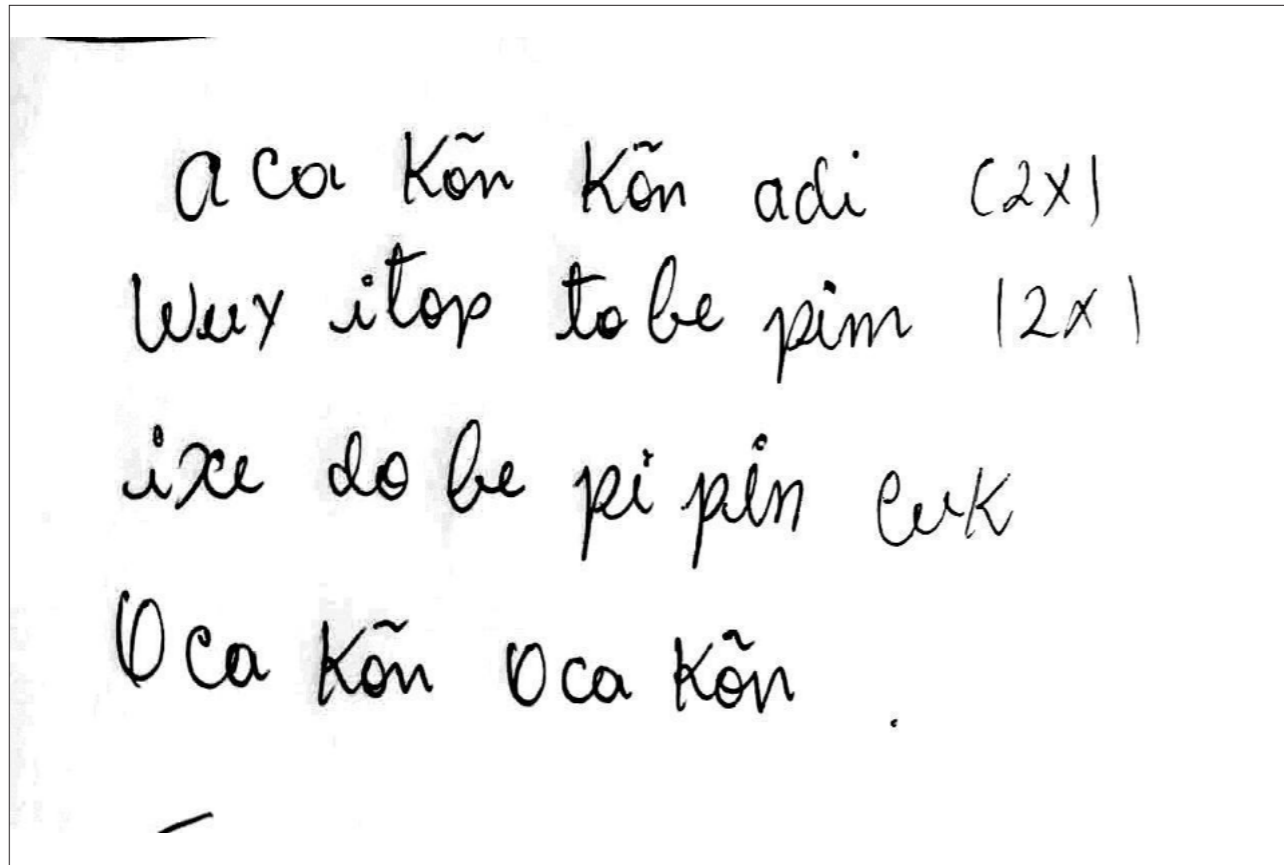 a ca Kõn Kõn adi (2x)
Wuy itop to be pim (2x)
ixe do be pi pin cuk
O ca Kõn O ca Kõn .